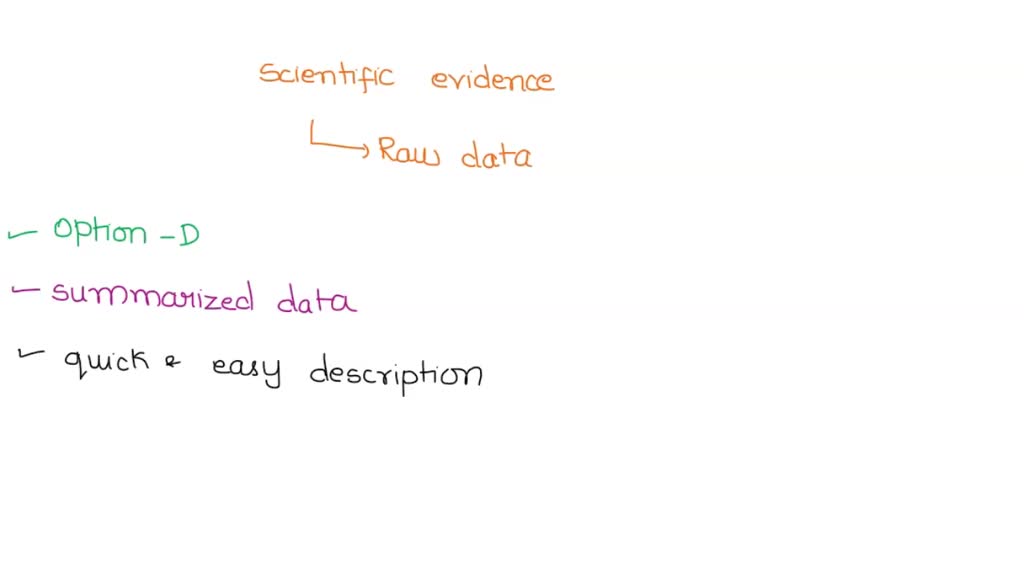 Scientific evidence
Raw data
Option - D
summarized data
quick & easy description